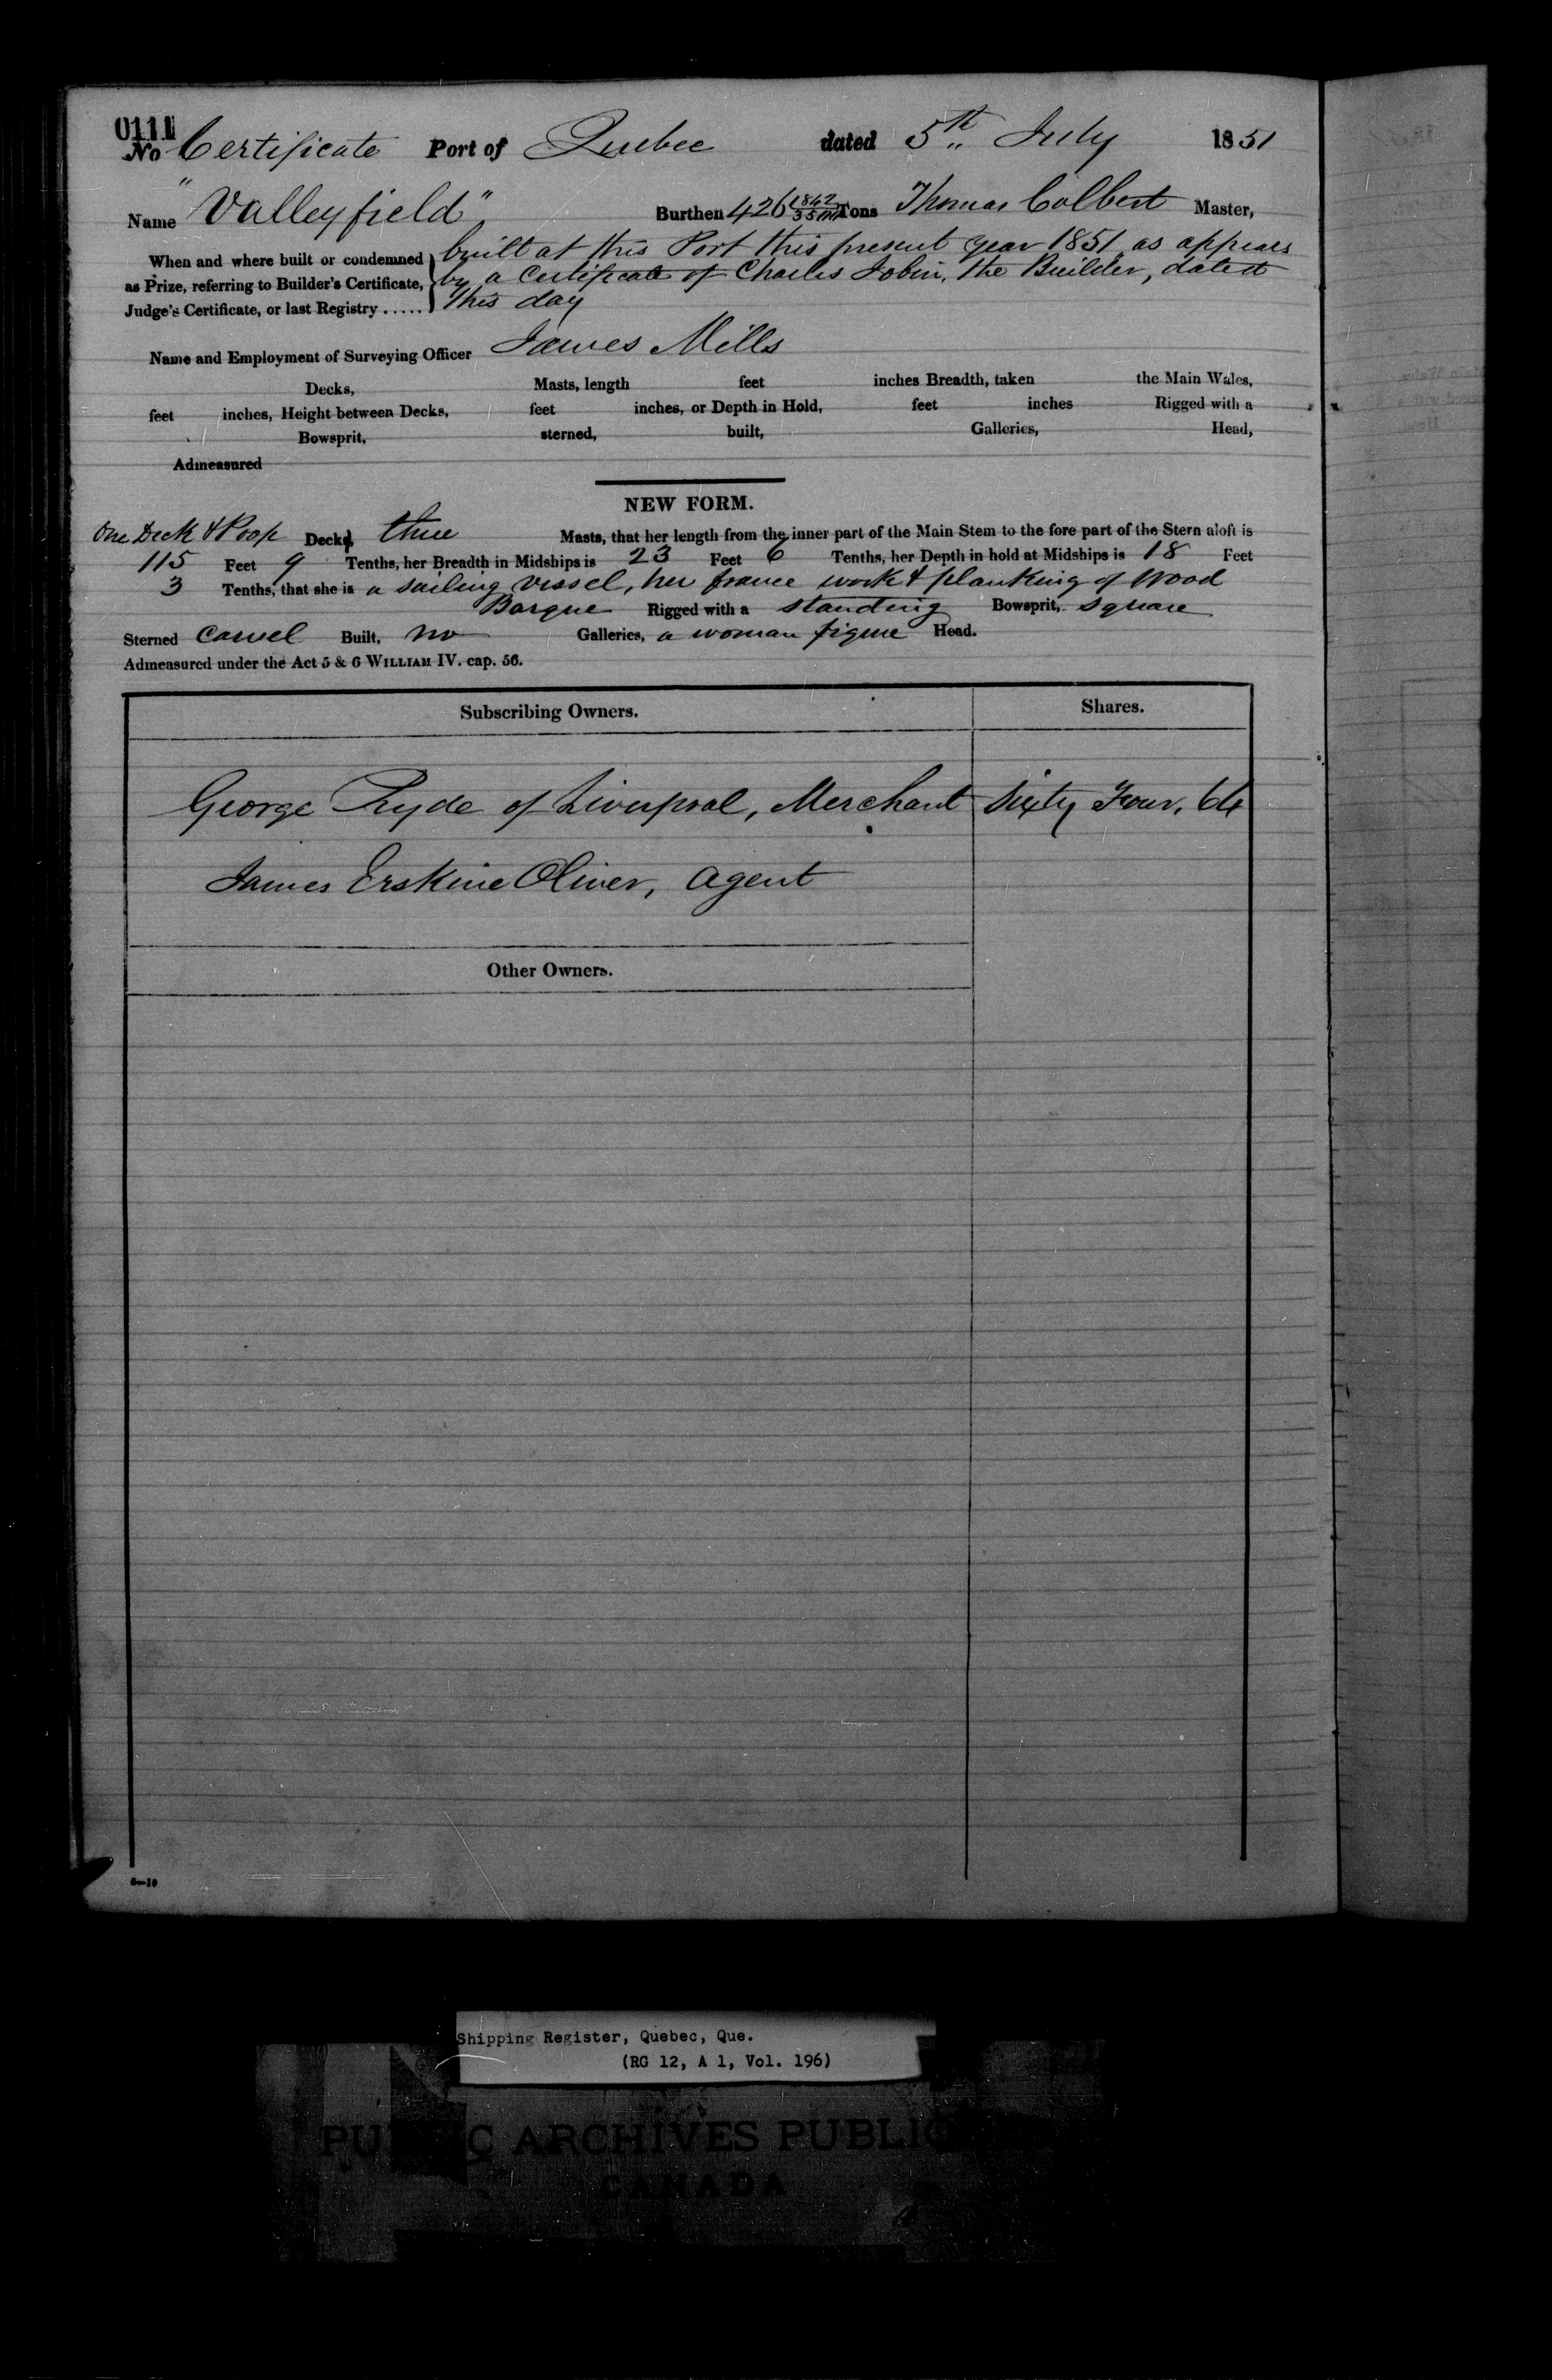 0111
No Certificate Port of Quebec dated 5th July 1851
Name "Valleyfield" Burthen 426 1842/3500 Tons Thomas Colbert Master,
When and where built or condemned as Prize, referring to Builder's Certificate, Judge's Certificate, or last Registry ..... built at this Port this present year 1851 as appears
by a Certificate of Charles Jobin, the Builder, dated
this day
Name and Employment of Surveying Officer James Mills
Decks, Masts, length feet inches Breadth, taken the Main Wales,
feet inches, Height between Decks, feet inches, or Depth in Hold, feet inches Rigged with a
Bowsprit, sterned, built, Galleries, Head,
Admeasured
NEW FORM.
One Deck & Poop Decks, three Masts, that her length from the inner part of the Main Stem to the fore part of the Stern aloft is
115 Feet 9 Tenths, her Breadth in Midships is 23 Feet 6 Tenths, her Depth in hold at Midships is 18 Feet
3 Tenths, that she is a sailing vessel, her frame work & planking of Wood
Barque Rigged with a standing Bowsprit, square
Sterned Carvel Built, no Galleries, a woman figure Head.
Admeasured under the Act 5 & 6 WILLIAM IV. cap. 56.
Subscribing Owners. Shares.
George Pryde of Liverpool, Merchant Sixty Four, 64
James Erskine Oliver, Agent
Other Owners.
6—10
Shipping Register, Quebec, Que.
(RG 12, A 1, Vol. 196)
ARCHIVES
CANADA